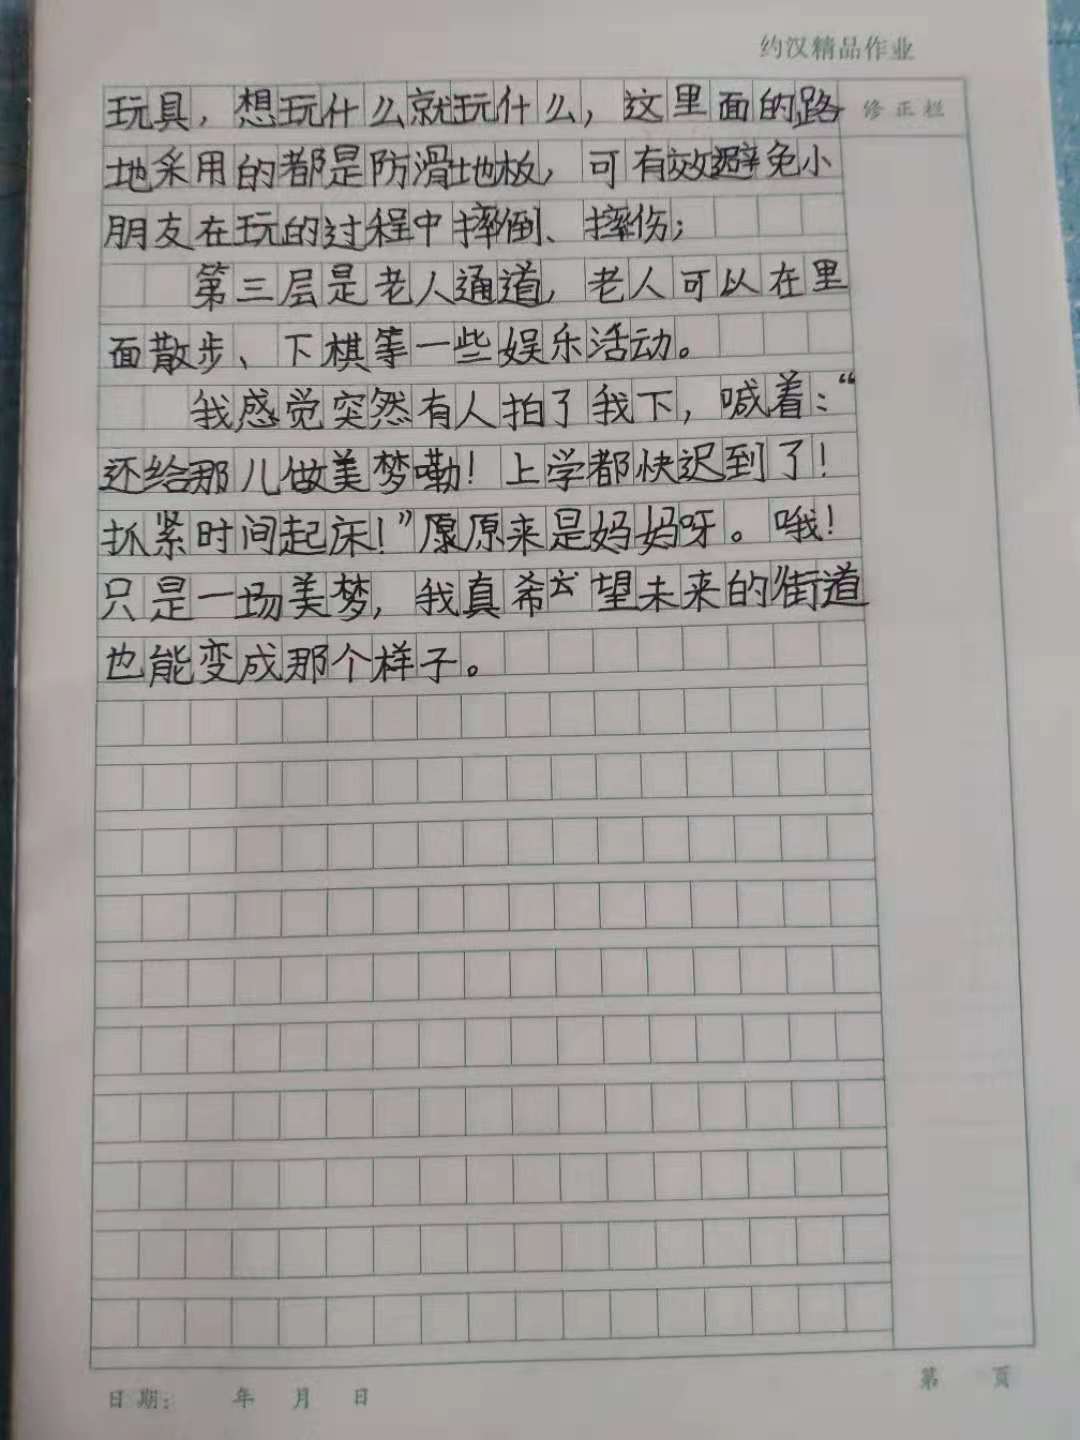 约汉精品作业
修正栏
玩具，想玩什么就玩什么，这里面的路
地采用的都是防滑地板，可有效避免小
朋友在玩的过程中摔倒、摔伤；
第三层是老人通道，老人可以在里
面散步、下棋等一些娱乐活动。
我感觉突然有人拍了我下，喊着：“
还给那儿做美梦嘞！上学都快迟到了！
抓紧时间起床！”原来是妈妈呀。哦！
只是一场美梦，我真希望未来的街道
也能变成那个样子。
日期： 年 月 日
第 页